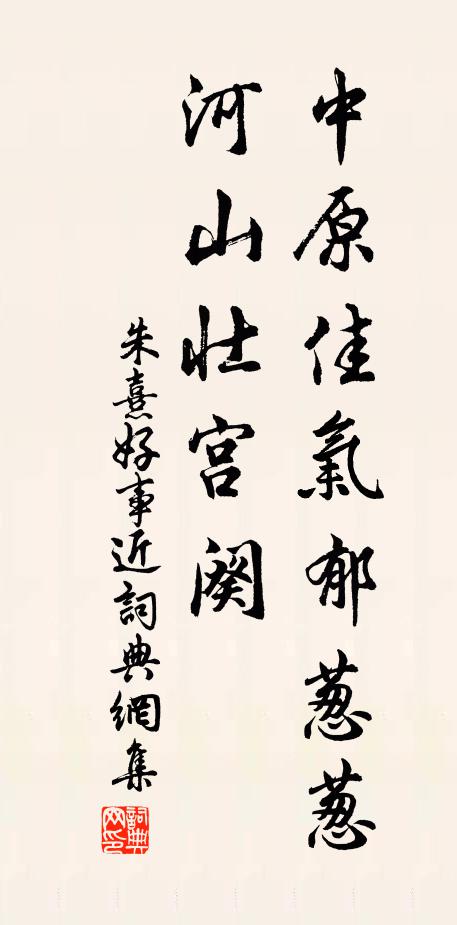 中原佳氣郁葱葱
河山壯宮闕
朱熹好事近詞典網集
詞典網印